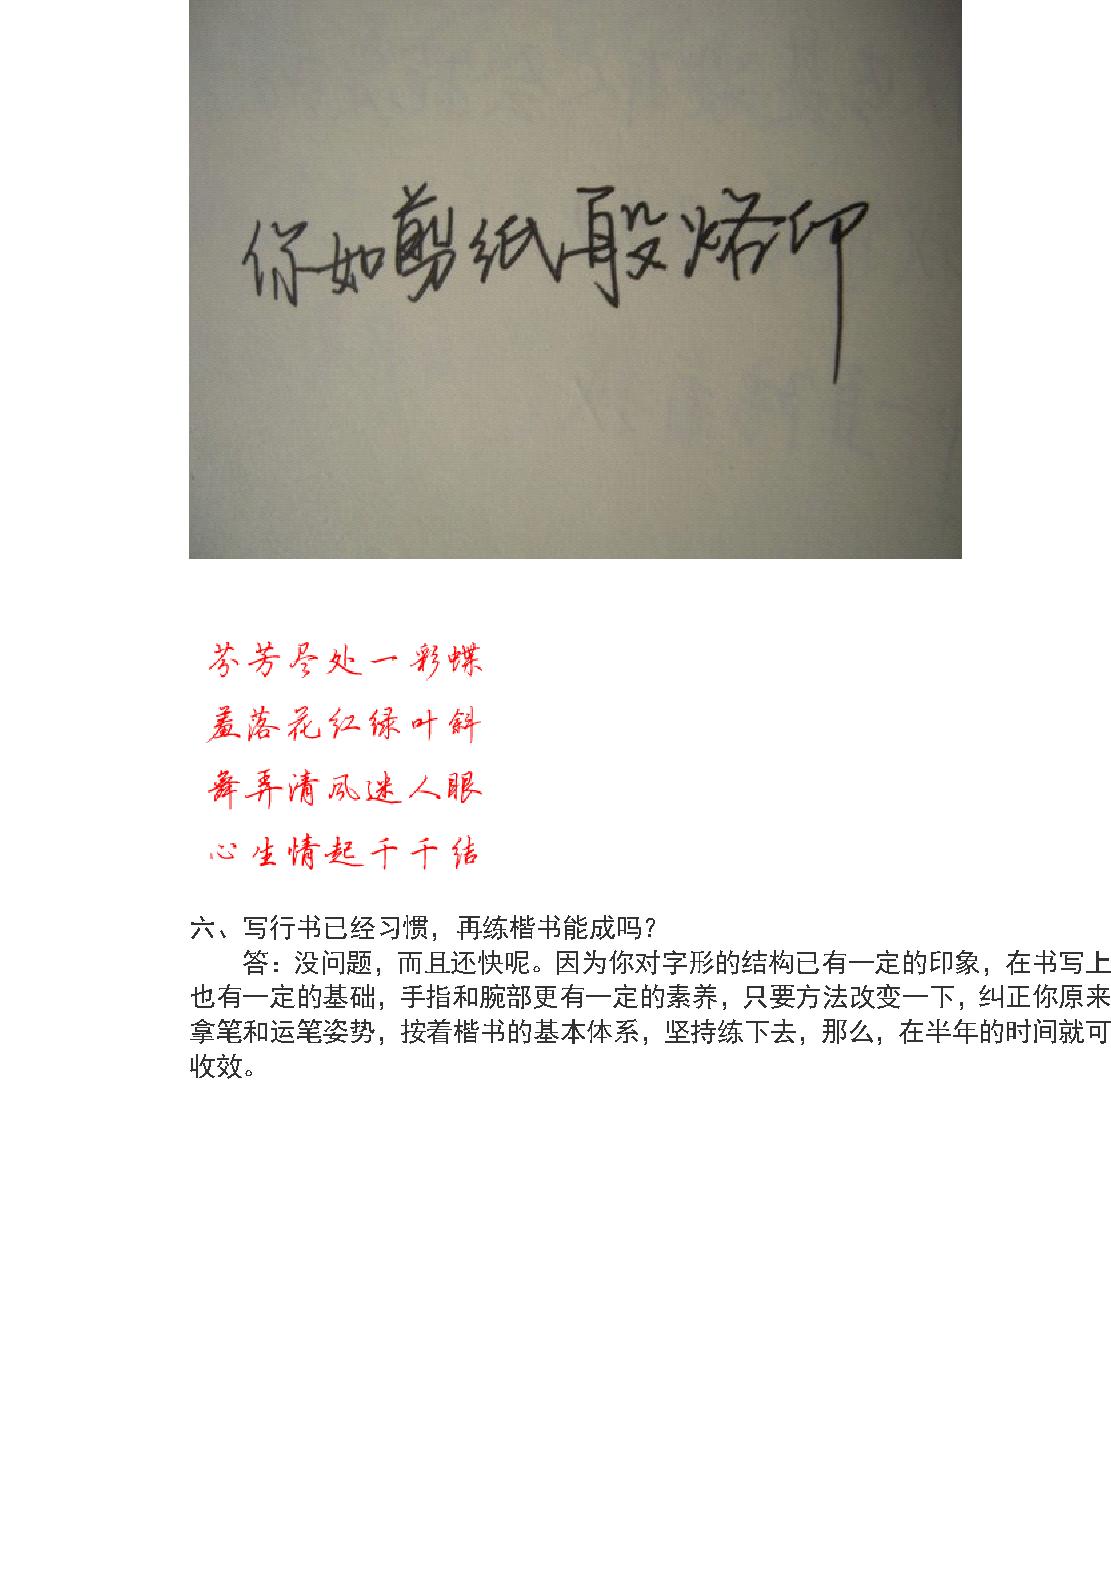 你如剪纸般烙印
芬芳尽处一彩蝶
羞落花红绿叶斜
舞弄清风迷人眼
心生情起千千结
六、写行书已经习惯，再练楷书能成吗？
答：没问题，而且还快呢。因为你对字形的结构已有一定的印象，在书写上
也有一定的基础，手指和腕部更有一定的素养，只要方法改变一下，纠正你原来
拿笔和运笔姿势，按着楷书的基本体系，坚持练下去，那么，在半年的时间就可
收效。